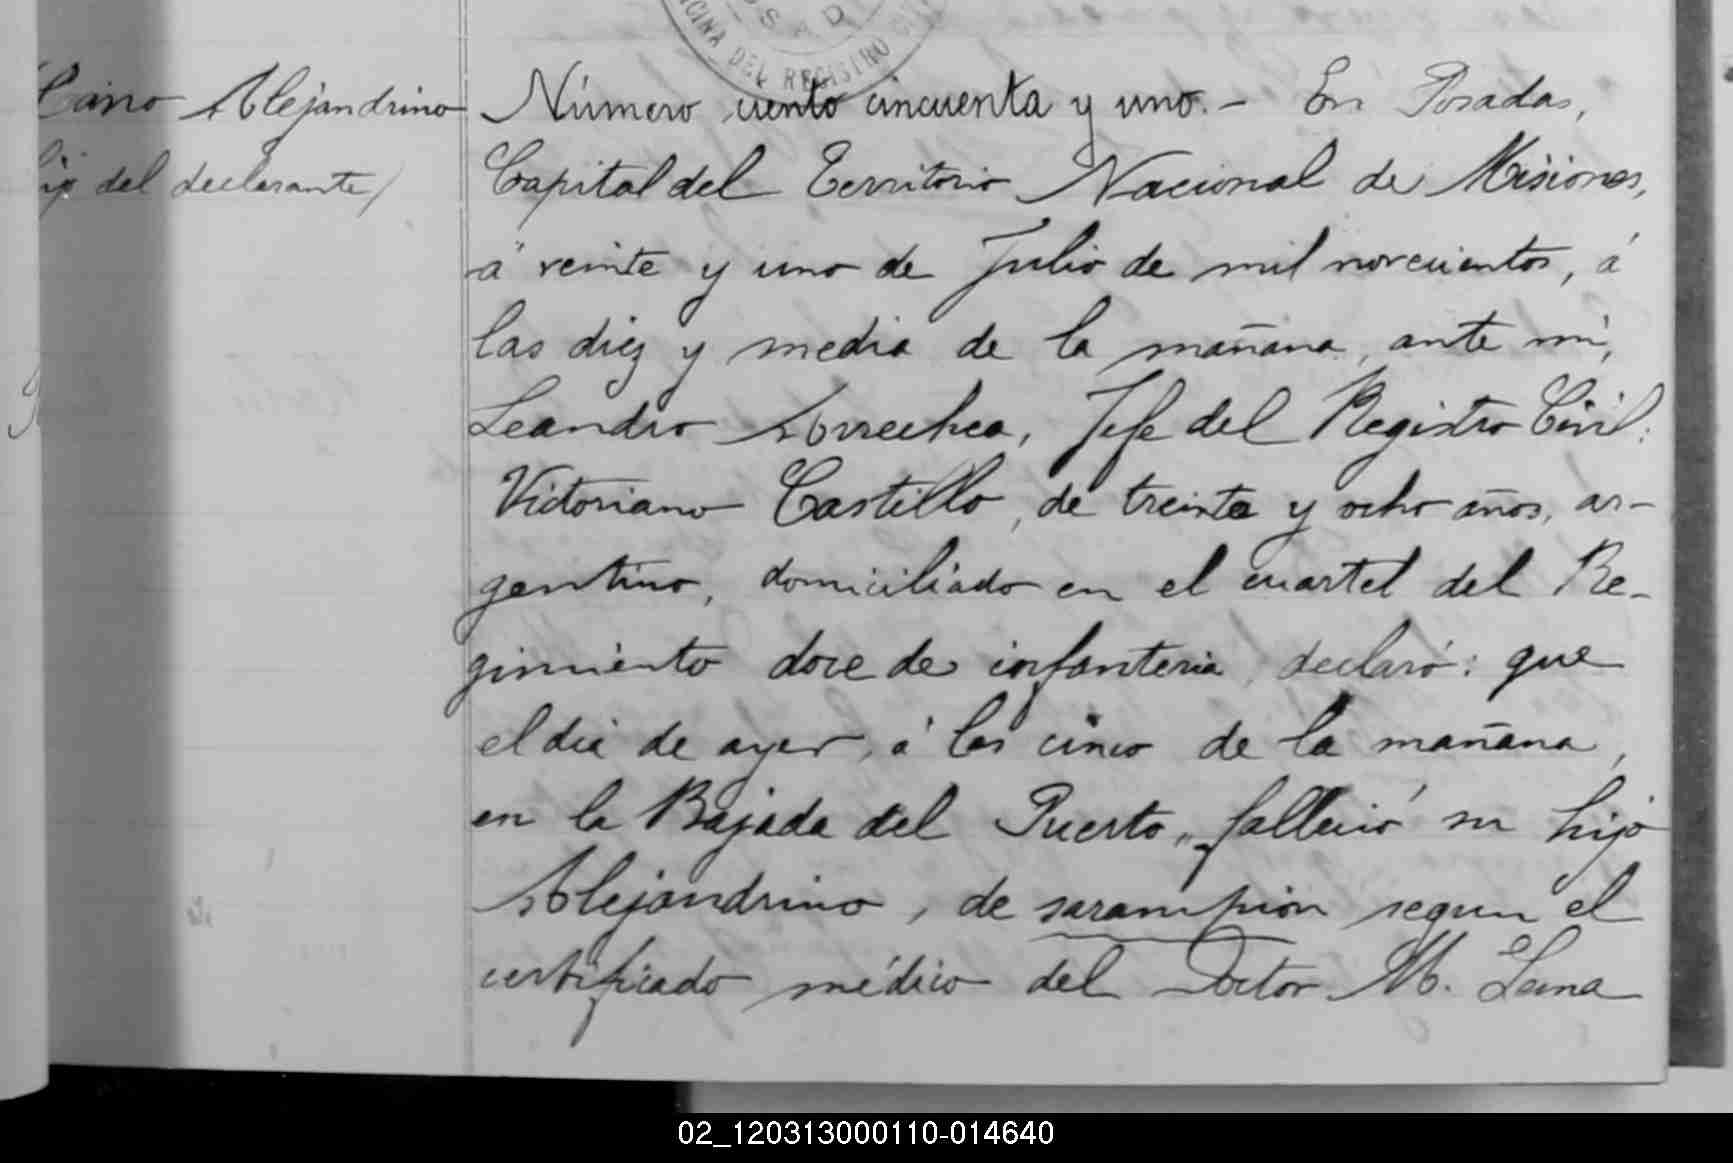 OFICINA DEL REGISTRO
Cano Alejandrino
hijo del declarante)
Número ciento cincuenta y uno.- En Posadas,
Capital del Territorio Nacional de Misiones,
á veinte y uno de Julio de mil novecientos, á
las diez y media de la mañana, ante mi,
Leandro Arrechea, Jefe del Registro Civil:
Victoriano Castillo, de treinta y ocho años, ar-
gentino, domiciliado en el cuartel del Re-
gimiento doce de infanteria, declaró: que
el dia de ayer, á las cinco de la mañana,
en la Bajada del Puerto, falleció su hijo
Alejandrino, de sarampion segun el
certificado médico del Doctor M.
02_120313000110-014640